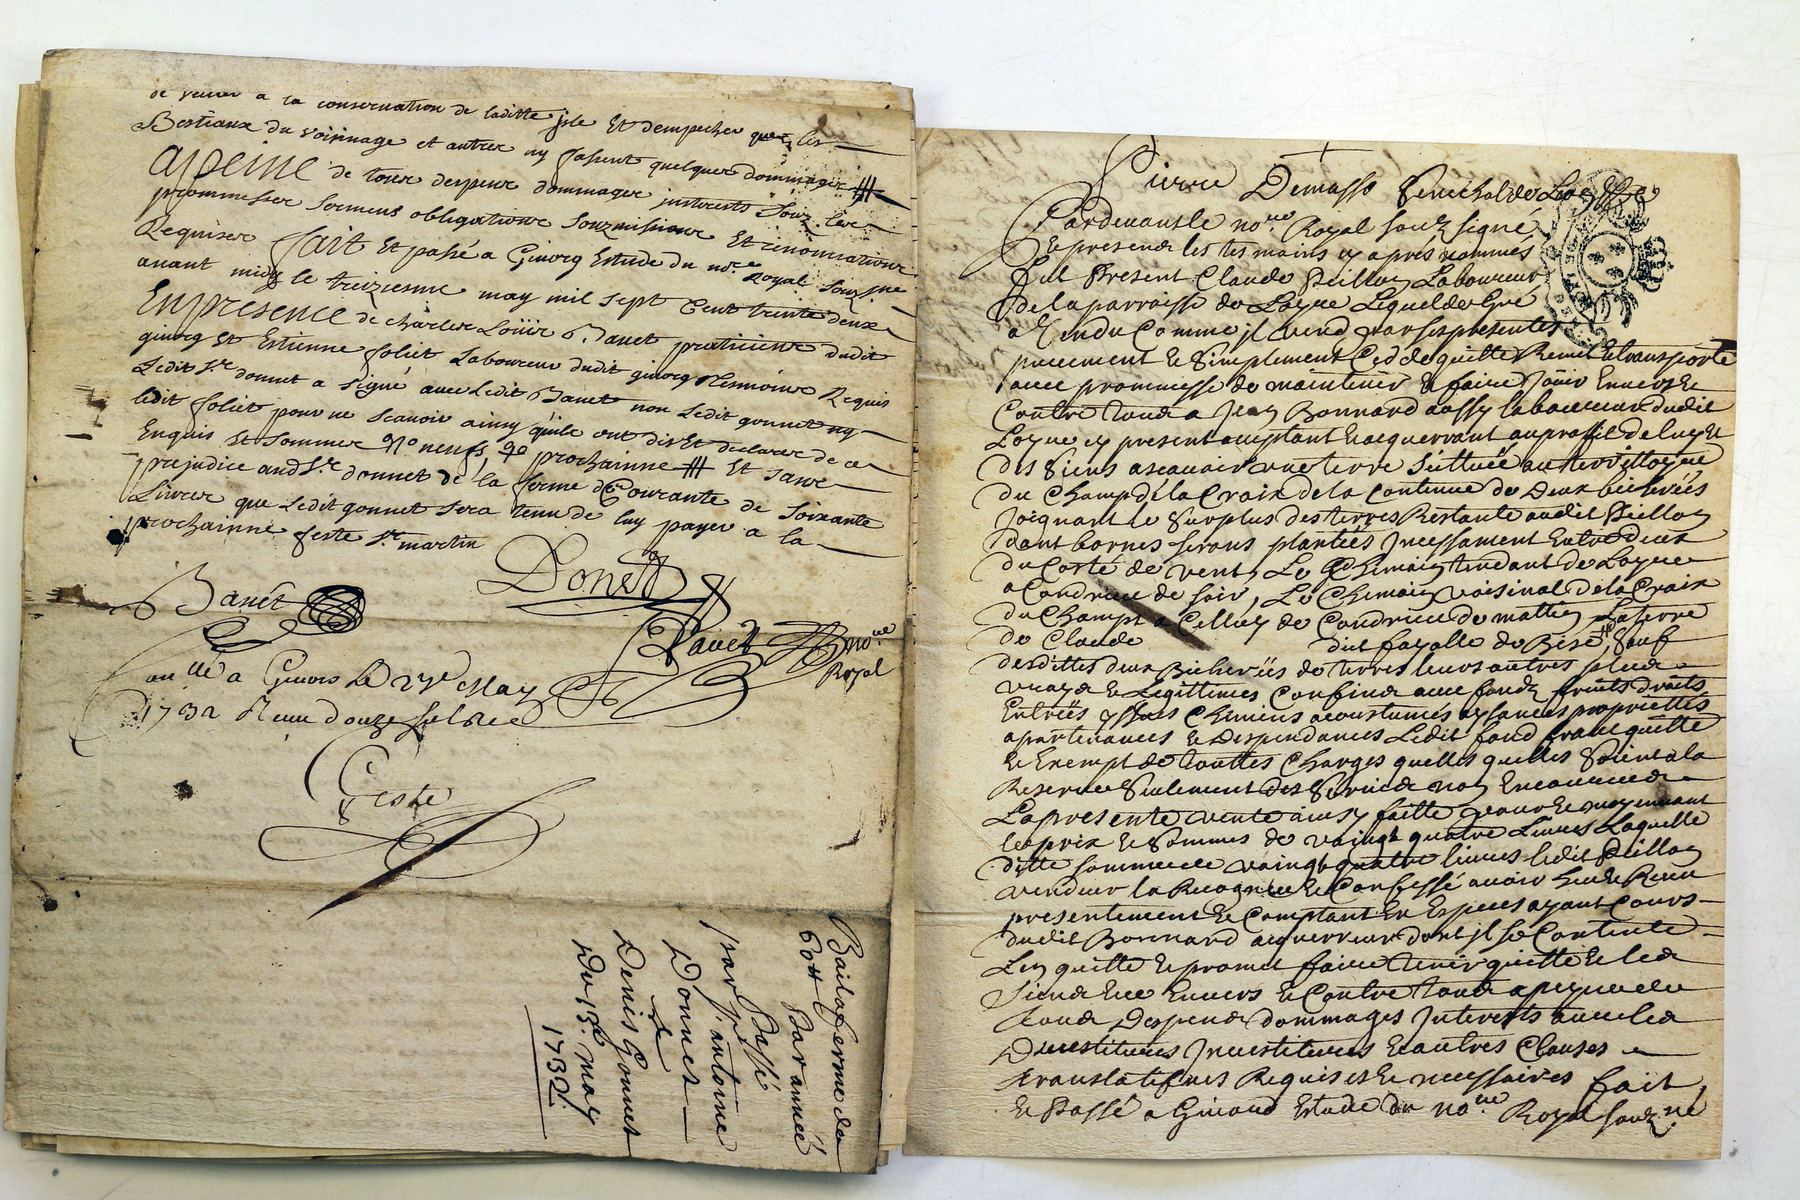 de veiller a la conservation de laditte jsle Et dempecher que les
Bestiaux du voisinage et autres ny fasent quelques dommages
apeine de tous despens dommages jnterests sous les
prommesses sermens obligations soumissions Et renonciations
Requises fait Et passé a Givors Estude du no.re Royal souz.ne
avant midy le treizieme may mil sept Cent trente deux
En presence de charles Loüis B. Banet praticiens dudit
givors Et Estienne foliet Laboureur dudit givors tesmoins Requis
Ledit Sr donnet a signé avec Ledit Banet non Ledit gonnet ny
ledit foliet pour ne scavoir ainsy qu'ils ont dit Et declarer de ce
Enquis Et sommer
prochainne Et sans
prejudice aud Sr. donnet de la ferme Courante de Soixante
Livres que Ledit gonnet sera tenu de luy payer a la
prochainne feste St. martin
Donet
Banet
no.re
Royal
Conllé a Givors Le 27e May
1732 Receu douze sols
Geste
Bail a ferme de
60tt Par année
Passé
par Sr. antoine
Donnet
a
Denis Gonnet
Du 13e. may
1732.
Pierre Demasso Senechal de Lyon
Pardevant le no.re Royal souz signé
Et presence les tesmoins cy apres nommés
fut Present Claude Peillon Laboureur
de la parroisse de Loyre Lequel de Gré
a Vendu Comme jl vend par ses presentes
purement Et Simplement Cedde quitte Remet Et transporte
avec prommesse de maintenir Et faire Jouir Envers Et
Contre tous a Jean Bonnard aussy laboureur dudit
Loyre cy present acceptant Et acquerrant au proffit de luy Et
des Siens ascavoir une terre Scittuée au territtoire
du Champ de la Croix de la Contenue de Deux bicherées
Joignant le Surplus des terres Restante audit Peillon
dont bornes serons plantées jncessament Entre deux
du Costé de vent, Le Chemain tendant de Loyre
a Condrieu de soir, Le Chemain voisinal de la Croix
du Champt a Celluy de Condrieu de mattin La terre
de Claude dit fayolle de Bise, Sauf
desdittes deux Bicherées de terres leurs autres plus
vrays Et Legittimes Confins avec fonds fruits droits
Entrées yssues Chemins acoustumés aysances proprietés
apartenances Et Despendances Ledit fond franc quitte
Et Exempt de touttes Charges quelles quelles Soient a la
Reserve Seulement des Servis non Encourus
La presente vente ainsy faitte pour Et moyennant
le prix Et Sommes de vaingt quatre Livres Laquelle
ditte somme de vaingt quatre livres ledit Peillon
vendeur la Recognu Et Confessé avoir heu Et Receu
presentement Et Comptant En Especes ayant Cours
dudit Bonnard acquerreur dont jl se Contente
Len quitte Et promet faire tenir quitte Et les
Siens Envers Et Contre tous a peyne de
tous Despens dommages Jnterests avec les
Devestitures jnvestitures Et autres Clauses
translatifves Requises Et necessaires fait
Et Passé a Givord Estude du no.re Royal souz.né